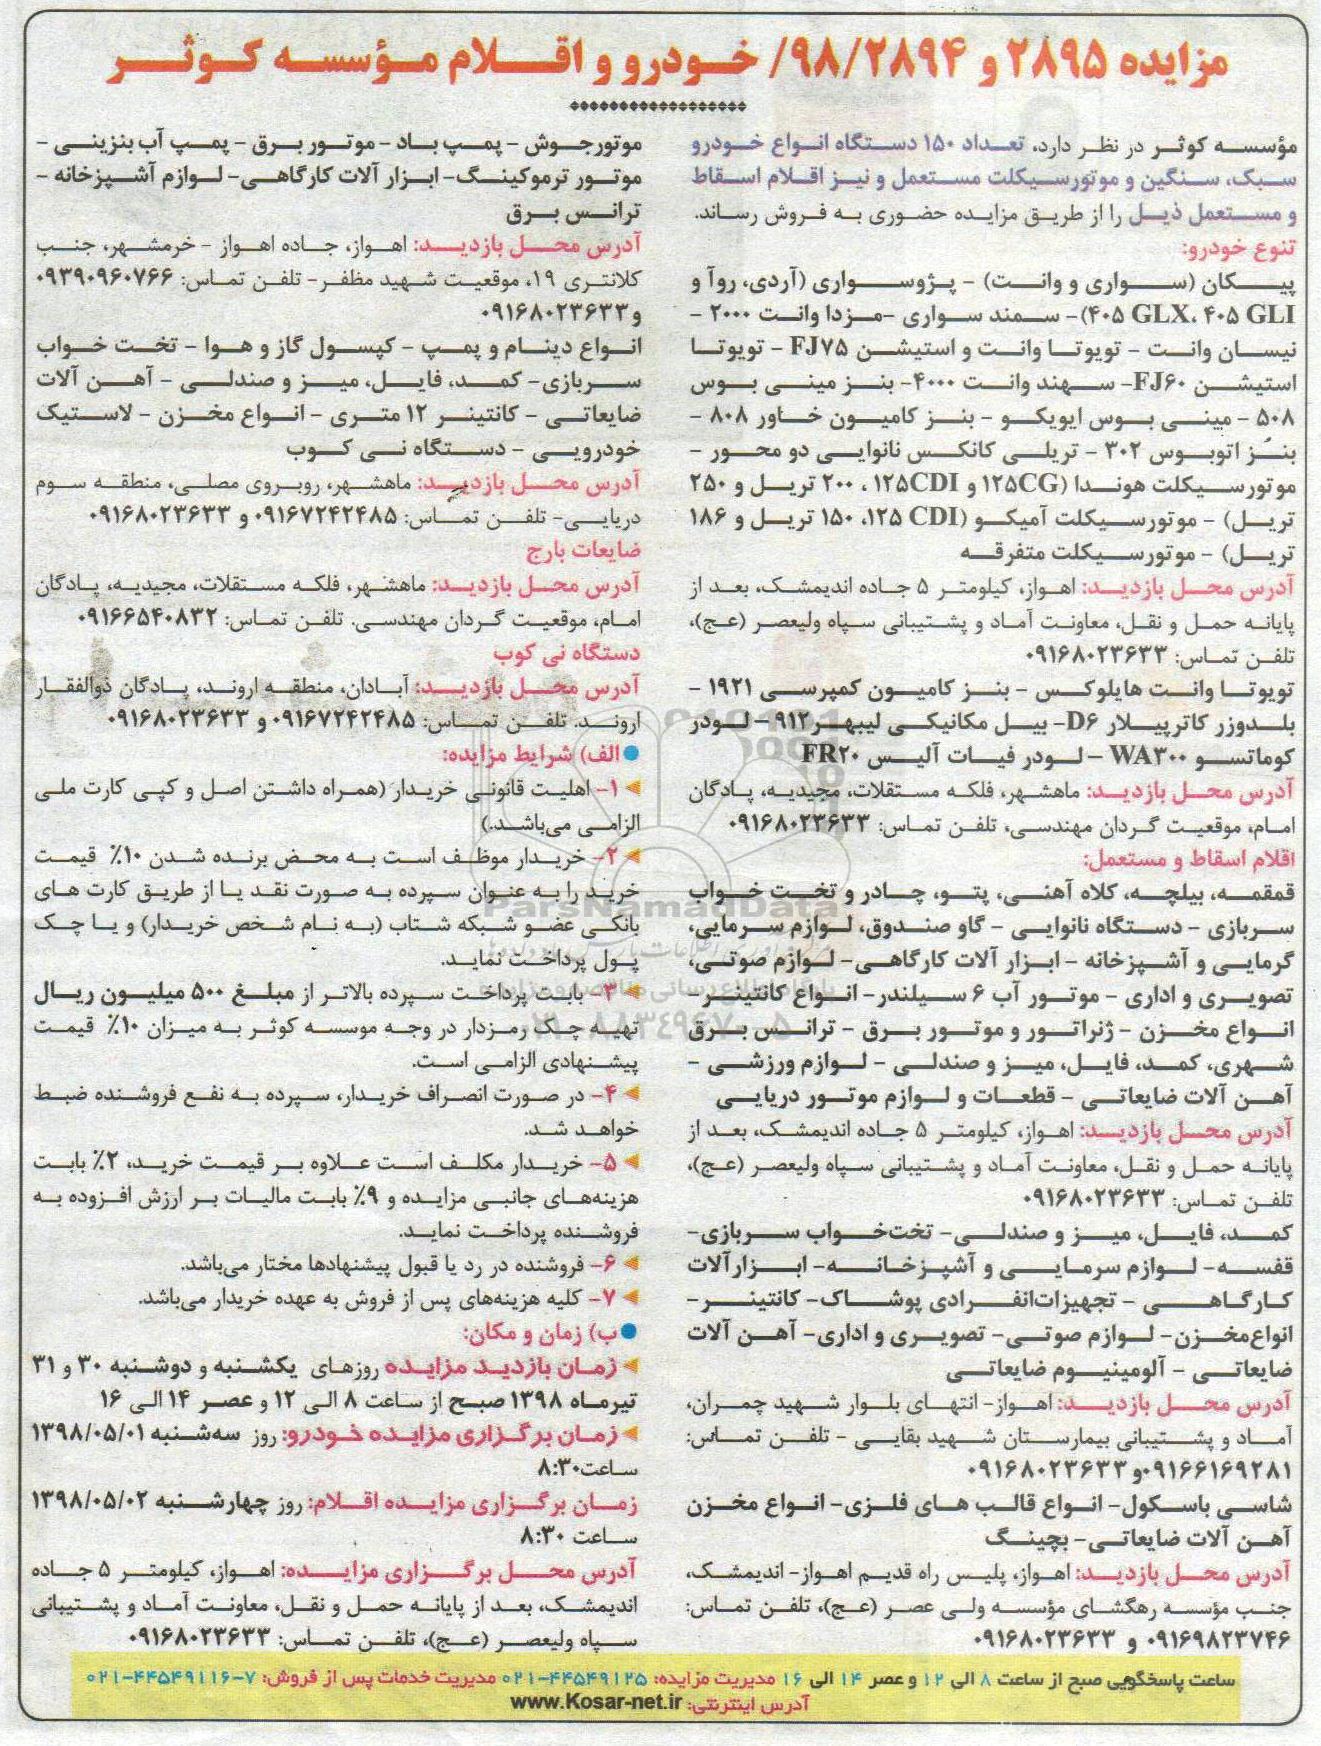 مزایده ۲۸۹۵ و ۹۸/۲۸۹۴/ خودرو و اقلام مؤسسه کوثر
مؤسسه کوثر در نظر دارد، تعداد ۱۵۰ دستگاه انواع خودرو
سبک، سنگین و موتورسیکلت مستعمل و نیز اقلام اسقاط
و مستعمل ذیل را از طریق مزایده حضوری به فروش رساند.
تنوع خودرو:
پیکان (سواری و وانت) - پژوسواری (آردی، روآ و
۴۰۵ GLX، ۴۰۵ GLI)- سمند سواری -مزدا وانت ۲۰۰۰ -
نیسان وانت - تویوتا وانت و استیشن FJ۷۵ - تویوتا
استیشن FJ۶۰- سهند وانت ۴۰۰۰- بنز مینی بوس
۵۰۸ - مینی بوس ایویکو - بنز کامیون خاور ۸۰۸ -
بنز اتوبوس ۳۰۲ - تریلی کانکس نانوایی دو محور -
موتورسیکلت هوندا (۱۲۵CG و ۱۲۵CDI ، ۲۰۰ تریل و ۲۵۰
تریل) - موتورسیکلت آمیکو (۱۲۵ CDI، ۱۵۰ تریل و ۱۸۶
تریل) - موتورسیکلت متفرقه
آدرس محل بازدید: اهواز، کیلومتر ۵ جاده اندیمشک، بعد از
پایانه حمل و نقل، معاونت آماد و پشتیبانی سپاه ولیعصر (عج)،
تلفن تماس: ۰۹۱۶۸۰۲۳۶۳۳
تویوتا وانت هایلوکس - بنز کامیون کمپرسی ۱۹۲۱ -
بلدوزر کاترپیلار D۶- بیل مکانیکی لیبهر۹۱۲ - لودر
کوماتسو WA۳۰۰ - لودر فیات آلیس FR۲۰
آدرس محل بازدید: ماهشهر، فلکه مستقلات، مجیدیه، پادگان
امام، موقعیت گردان مهندسی، تلفن تماس: ۰۹۱۶۸۰۲۳۶۳۳
اقلام اسقاط و مستعمل:
قمقمه، بیلچه، کلاه آهنی، پتو، چادر و تخت خواب
سربازی - دستگاه نانوایی - گاو صندوق، لوازم سرمایی،
گرمایی و آشپزخانه - ابزار آلات کارگاهی- لوازم صوتی،
تصویری و اداری - موتور آب ۶ سیلندر- انواع کانتینر-
انواع مخزن - ژنراتور و موتور برق - ترانس برق
شهری، کمد، فایل، میز و صندلی - لوازم ورزشی -
آهن آلات ضایعاتی - قطعات و لوازم موتور دریایی
آدرس محل بازدید: اهواز، کیلومتر ۵ جاده اندیمشک، بعد از
پایانه حمل و نقل، معاونت آماد و پشتیبانی سپاه ولیعصر (عج)،
تلفن تماس: ۰۹۱۶۸۰۲۳۶۳۳
کمد، فایل، میز و صندلی- تخت‌خواب سربازی-
قفسه- لوازم سرمایی و آشپزخانه- ابزارآلات
کارگاهی - تجهیزات‌انفرادی پوشاک- کانتینر-
انواع‌مخزن- لوازم صوتی- تصویری و اداری- آهن آلات
ضایعاتی - آلومینیوم ضایعاتی
آدرس محل بازدید: اهواز- انتهای بلوار شهید چمران،
آماد و پشتیبانی بیمارستان شهید بقایی - تلفن تماس:
۰۹۱۶۶۱۶۹۲۸۱و ۰۹۱۶۸۰۲۳۶۳۳
شاسی باسکول- انواع قالب های فلزی- انواع مخزن
آهن آلات ضایعاتی- بچینگ
آدرس محل بازدید: اهواز، پلیس راه قدیم اهواز- اندیمشک،
جنب مؤسسه رهگشای مؤسسه ولی عصر (عج)، تلفن تماس:
۰۹۱۶۹۸۲۳۷۴۶ و ۰۹۱۶۸۰۲۳۶۳۳
موتورجوش - پمپ باد - موتور برق - پمپ آب بنزینی -
موتور ترموکینگ- ابزار آلات کارگاهی- لوازم آشپزخانه -
ترانس برق
آدرس محل بازدید: اهواز، جاده اهواز - خرمشهر، جنب
کلانتری ۱۹، موقعیت شهید مظفر- تلفن تماس: ۰۹۳۹۰۹۶۰۷۶۶
و۰۹۱۶۸۰۲۳۶۳۳
انواع دینام و پمپ - کپسول گاز و هوا - تخت خواب
سربازی- کمد، فایل، میز و صندلی - آهن آلات
ضایعاتی - کانتینر ۱۲ متری - انواع مخزن - لاستیک
خودرویی - دستگاه نی کوب
آدرس محل بازدید: ماهشهر، روبروی مصلی، منطقه سوم
دریایی- تلفن تماس: ۰۹۱۶۷۲۴۲۴۸۵ و ۰۹۱۶۸۰۲۳۶۳۳
ضایعات بارج
آدرس محل بازدید: ماهشهر، فلکه مستقلات، مجیدیه، پادگان
امام، موقعیت گردان مهندسی. تلفن تماس: ۰۹۱۶۶۵۴۰۸۳۲
دستگاه نی کوب
آدرس محل بازدید: آبادان، منطقه اروند، پادگان ذوالفقار
اروند. تلفن تماس: ۰۹۱۶۷۲۴۲۴۸۵ و ۰۹۱۶۸۰۲۳۶۳۳
الف) شرایط مزایده:
۱- اهلیت قانونی خریدار (همراه داشتن اصل و کپی کارت ملی
الزامی می‌باشد.)
۲- خریدار موظف است به محض برنده شدن ۱۰٪ قیمت
خرید را به عنوان سپرده به صورت نقد یا از طریق کارت های
بانکی عضو شبکه شتاب (به نام شخص خریدار) و یا چک
پول پرداخت نماید.
۳- بابت پرداخت سپرده بالاتر از مبلغ ۵۰۰ میلیون ریال
تهیه چک رمزدار در وجه موسسه کوثر به میزان ۱۰٪ قیمت
پیشنهادی الزامی است.
۴- در صورت انصراف خریدار، سپرده به نفع فروشنده ضبط
خواهد شد.
۵- خریدار مکلف است علاوه بر قیمت خرید، ۲٪ بابت
هزینه‌های جانبی مزایده و ۹٪ بابت مالیات بر ارزش افزوده به
فروشنده پرداخت نماید.
۶- فروشنده در رد یا قبول پیشنهادها مختار می‌باشد.
۷- کلیه هزینه‌های پس از فروش به عهده خریدار می‌باشد.
ب) زمان و مکان:
زمان بازدید مزایده روزهای یکشنبه و دوشنبه ۳۰ و ۳۱
تیرماه ۱۳۹۸ صبح از ساعت ۸ الی ۱۲ و عصر ۱۴ الی ۱۶
زمان برگزاری مزایده خودرو: روز سه‌شنبه ۱۳۹۸/۰۵/۰۱
ساعت۸:۳۰
زمان برگزاری مزایده اقلام: روز چهارشنبه ۱۳۹۸/۰۵/۰۲
ساعت ۸:۳۰
آدرس محل برگزاری مزایده: اهواز، کیلومتر ۵ جاده
اندیمشک، بعد از پایانه حمل و نقل، معاونت آماد و پشتیبانی
سپاه ولیعصر (عج)، تلفن تماس: ۰۹۱۶۸۰۲۳۶۳۳
ساعت پاسخگویی صبح از ساعت ۸ الی ۱۲ و عصر ۱۴ الی ۱۶ مدیریت مزایده: ۴۴۵۴۹۱۲۵-۰۲۱ مدیریت خدمات پس از فروش: ۷-۴۴۵۴۹۱۱۶-۰۲۱
آدرس اینترنتی: www.Kosar-net.ir
ParsNamadData